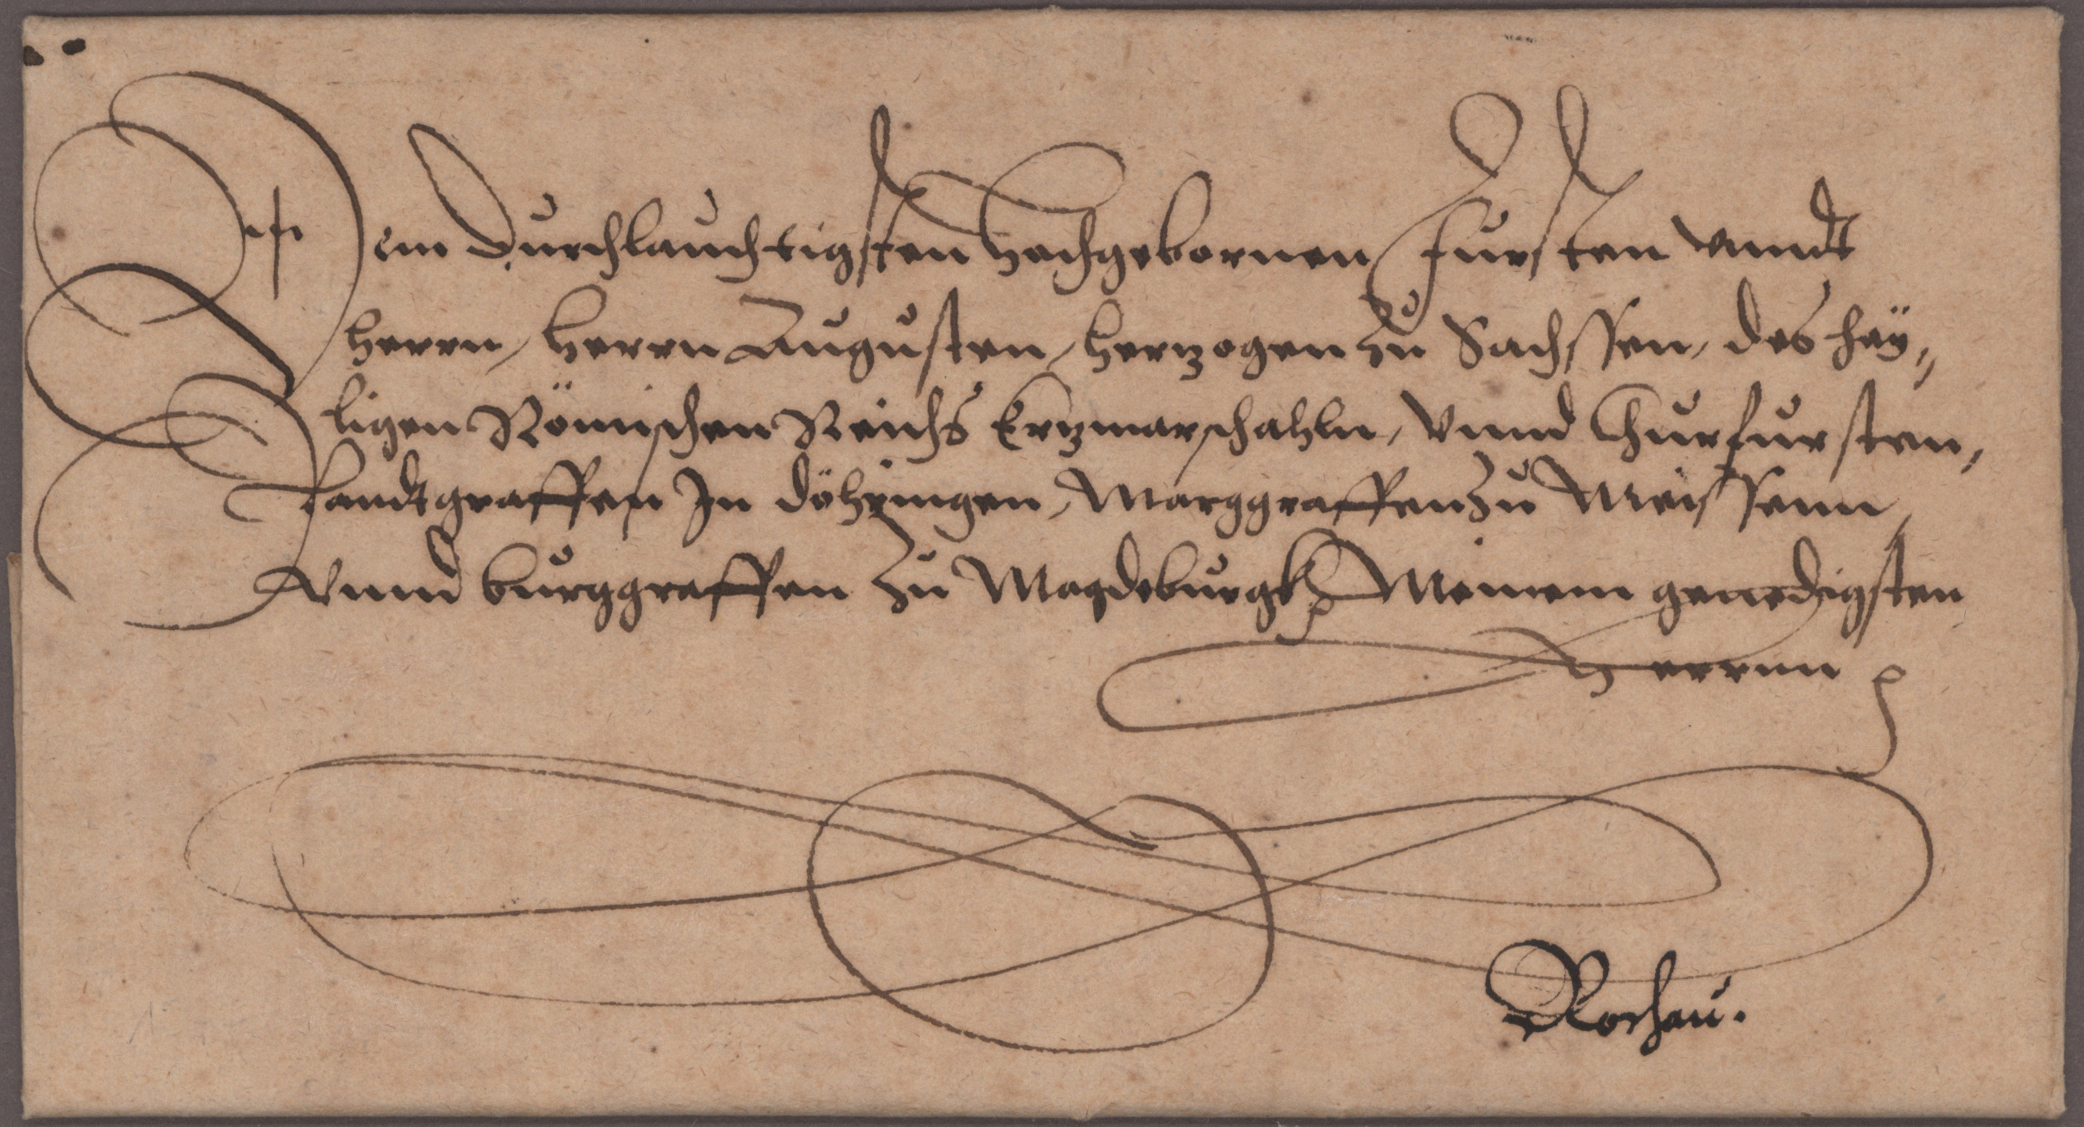 Dem Durchlauchtigsten Hochgebornen Fursten vnndt
Herrn, Herrn Augusten, Hertzogen zu Sachssen, des hey„
ligen Römischen Reichs Ertzmarschahln, Vnnd Churfursten,
Landtgraffen In Döhringen, Marggraffen zu Meissenn,
Vnnd Burggraffen zu Magdeburgk, Meinem genedigsten
Herrnn
Rochau.